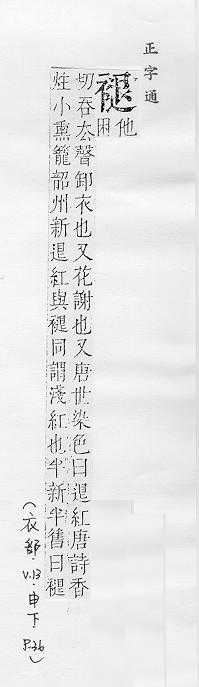 正字通
褪
他
困
切吞厺聲卸衣也又花謝也又唐世染色曰退紅唐詩香
炷小熏籠韶州新退紅與褪同謂淺紅也半新半舊曰褪
(衣部.V.13.申下.P.26)